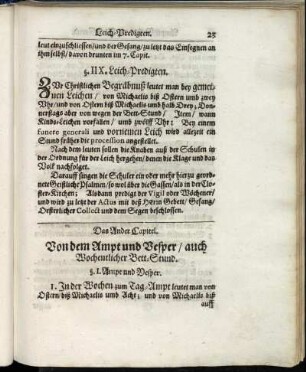 Leich-Predigten. 25
leut einzuschliessen/und der Gesang/zu letzt das Einsegnen an
ihm selbst/davon drunten im 7. Capit.
§. IIX. Leich-Predigten.
ZUr Christlichen Begräbnuß leutet man bey gemei-
nen Leichen / von Michaelis biß Ostern umb zwey
Uhr/ und von Ostern biß Michaelis umb halb Drey; Don-
nerstags aber von wegen der Bett-Stund / Item / wann
Kinds-Leichen vorfallen / umb zwölff Uhr: Bey einem
funere generali und vornemen Leich wird allezeit ein
Stund früher die procession angestellet.
Nach dem leuten sollen die Knaben auß der Schulen in
der Ordnung für der Leich hergehen/ denen die Klage und das
Volck nachfolget.
Darauff singen die Schuler ein oder mehr hierzu geord-
nete Geistliche Psalmen/so wol über die Gassen/als in der Clo-
ster-Kirchen: Alsdann prediget der Vigil oder Wöchener/
und wird zu letzt der Actus mit deß Herrn Gebett / Gesang/
Oesterlicher Collect und dem Segen beschlossen.
Das Ander Capitel.
Von dem Ampt und Vesper / auch
Wochentlicher Bett-Stund.
§. I. Ampt und Vesper.
1. In der Wochen zum Tag-Ampt leutet man von
Ostern biß Michaelis umb Acht; und von Michaelis biß
auff